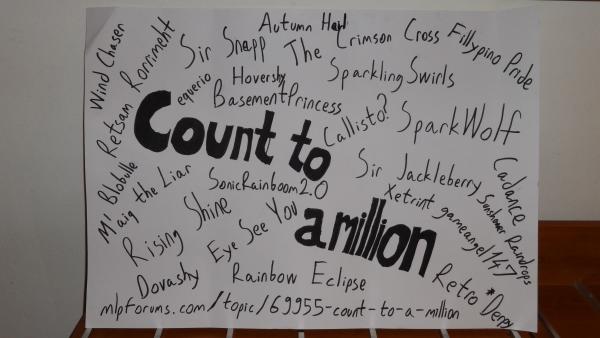 Autumn
Wind Chaser
Retsam Rorriment
Sir Snapp
The Crimson Cross
Fillypino Pride
equerio
Hoversky
BasementPrincess
SparklingSwirls
Count to
Callisto?
SparkWolf
M' Blobulle
aig the Liar
SonicRainboom2.0
Sir Jackleberry
Cadance
Xetrint
Sunshower Raindrops
gameangel147
Rising Shine
Eye See You
a million
Dovashy
Rainbow Eclipse
Retro*Derpy
mlpforums.com/topic/69955-count-to-a-million